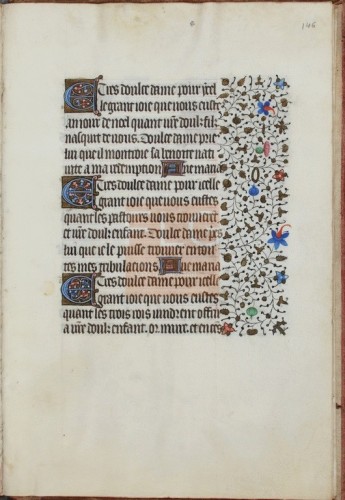 146
E tres doulce dame pour ycel
le grant ioie que uous eustes
au iour de noel quant ur̃e doulz filz
nasquit de uous. Doulce dame prie
lui que il mottroie sa benoite nati
uite a ma redemption Aue maria
E tres doulce dame pour icelle
grant ioie que uous eustes
quant les pastours uous trouuerent
et ur̃e doulz enfant. Doulce dame pries
lui que ie le puisse trouuer en tou
tes mes tribulacions Aue maria
E tres doulce dame pour icelle
grant ioie que uous eustes
quant les trois rois uindrent offrir
a ur̃e doulz enfant. or. mirre. et ences